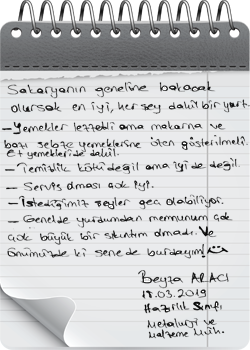 Sakaryanın geneline bakacak
olursak en iyi, her şey dahil bir yurt.
- Yemekler lezzetli ama makarna ve
bazı sebze yemeklerine özen gösterilmeli.
et yemekleride dahil.
- Temizlik kötü değil ama iyi de değil.
- Servis olması çok iyi.
- İstediğimiz şeyler geç olabiliyor.
- Genelde yurdumdan memnunum çok
çok büyük bir sıkıntım olmadı. Ve
önümüzde ki sene de burdayım!
Beyza ALACI
18.03.2019
Hazırlık Sınıfı
Metalurji ve
Malzeme Müh.